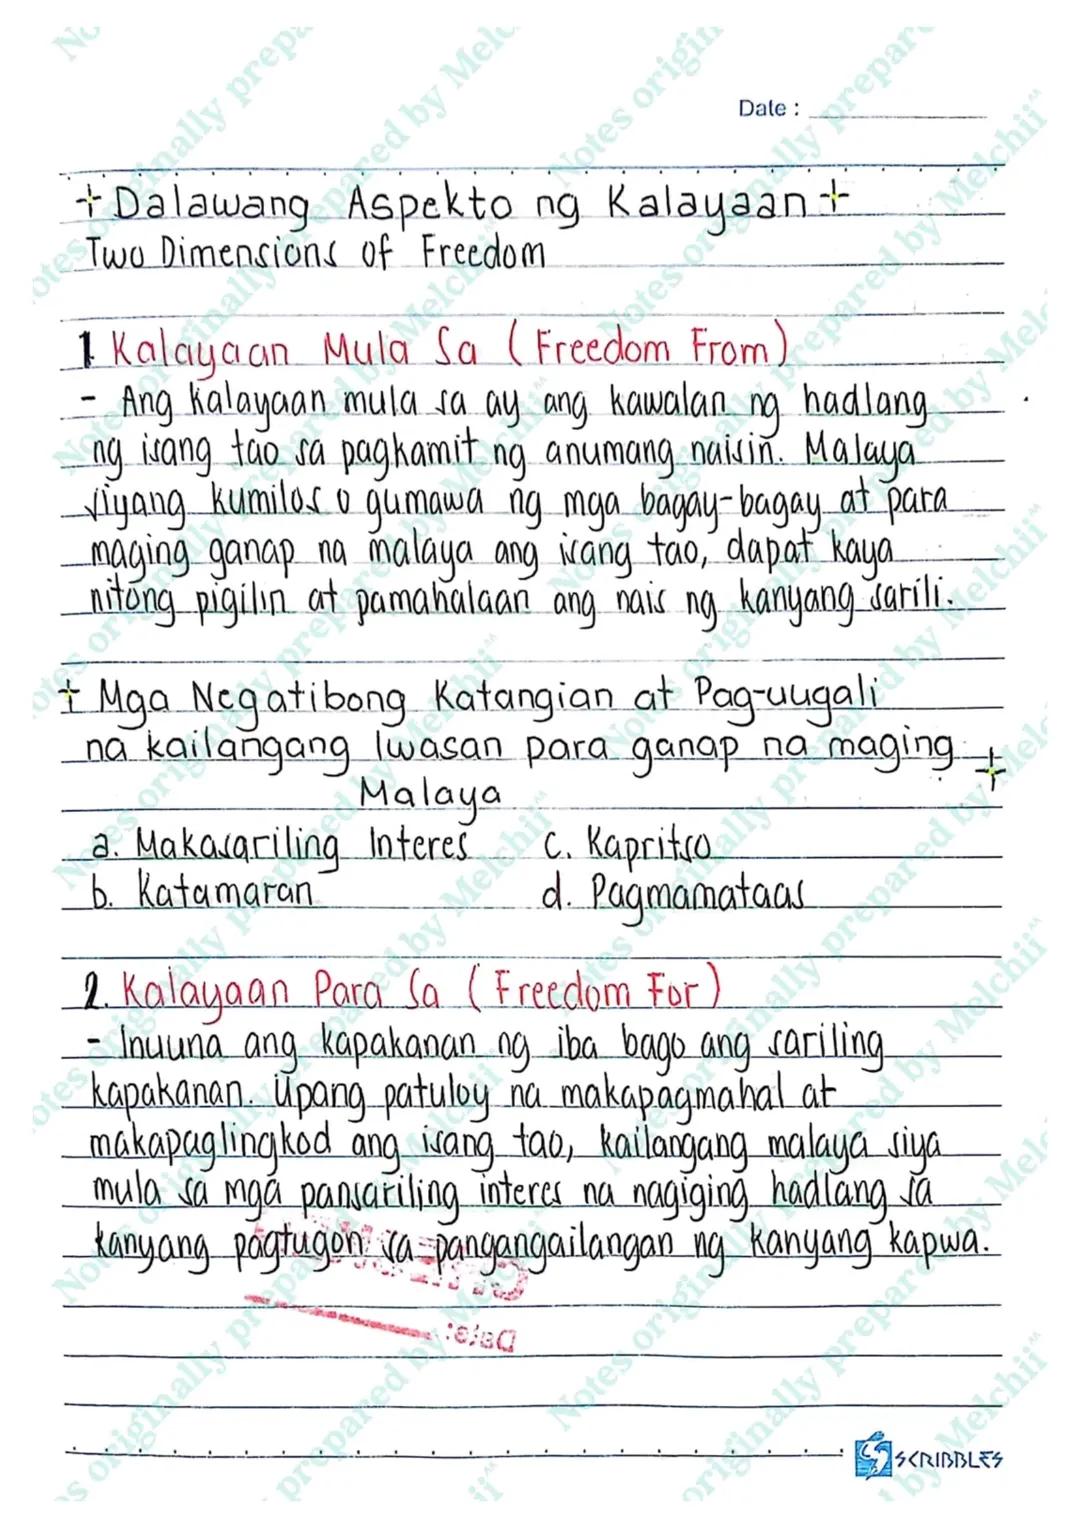 Date :
+ Dalawang Aspekto ng Kalayaan +
Two Dimensions of Freedom
1 Kalayaan Mula Sa (Freedom From)
- Ang kalayaan mula sa ay ang kawalan ng hadlang
ng isang tao sa pagkamit ng anumang naisin. Malaya
siyang kumilos o gumawa ng mga bagay-bagay at para
maging ganap na malaya ang isang tao, dapat kaya
nitong pigilin at pamahalaan ang nais ng kanyang sarili.
+ Mga Negatibong Katangian at Pag-uugali
na kailangang Iwasan para ganap na maging +
Malaya
a. Makasariling Interes c. Kapritso
b. Katamaran d. Pagmamataas
2. Kalayaan Para Sa (Freedom For)
- Inuuna ang kapakanan ng iba bago ang sariling
kapakanan. Upang patuloy na makapagmahal at
makapaglingkod ang isang tao, kailangang malaya siya
mula sa mga pansariling interes na nagiging hadlang sa
kanyang pagtugon sa pangangailangan ng kanyang kapwa.
Date:
SCRIBBLES
Notes originally prepared by Melchii^^